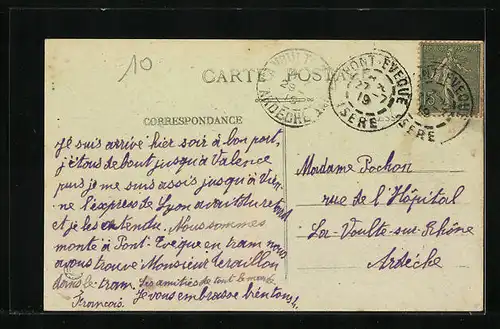 10
CARTE POSTALE
LA VOULT
29
19
ARDÈCHE
PONT-ÉVÊQUE
27 -7
19
ISÈRE
15
PONT-ÉVÊQUE
ISÈRE
CORRESPONDANCE
Je suis arrivé hier soir à bon port,
j'étais debout jusqu'à Valence
puis je me suis assis jusqu'à Vien-
ne l'express de Lyon avait du retard
et je l'ai entendu. Nous sommes
monté à Pont-Evêque en tram nous
avons trouvé Monsieur
dans le tram. Les amitiés de tout le monde
Je vous embrasse bientôt.
François
Madame Pochon
rue de l'Hôpital
La-Voulte-sur-Rhône
Ardèche